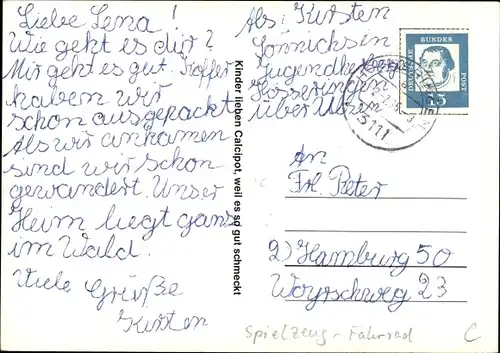 Liebe Lena!
Wie geht es dir?
Mir geht es gut. Koffer
haben wir
schon ausgepackt
Als wir ankamen
sind wir schon
gewandert. Unser
Heim liegt ganz
im Wald.
Viele Grüße
Kirsten
Kinder lieben Calcipot, weil es so gut schmeckt
Abs: Kirsten
Sönnichsen
Jugendherberge
Hösseringen
über
DEUTSCHE BUNDES POST
15
3111
An
Frl. Peter
2) Hamburg 50
Woyrschweg 23
Spielzeug - Fahrrad
C